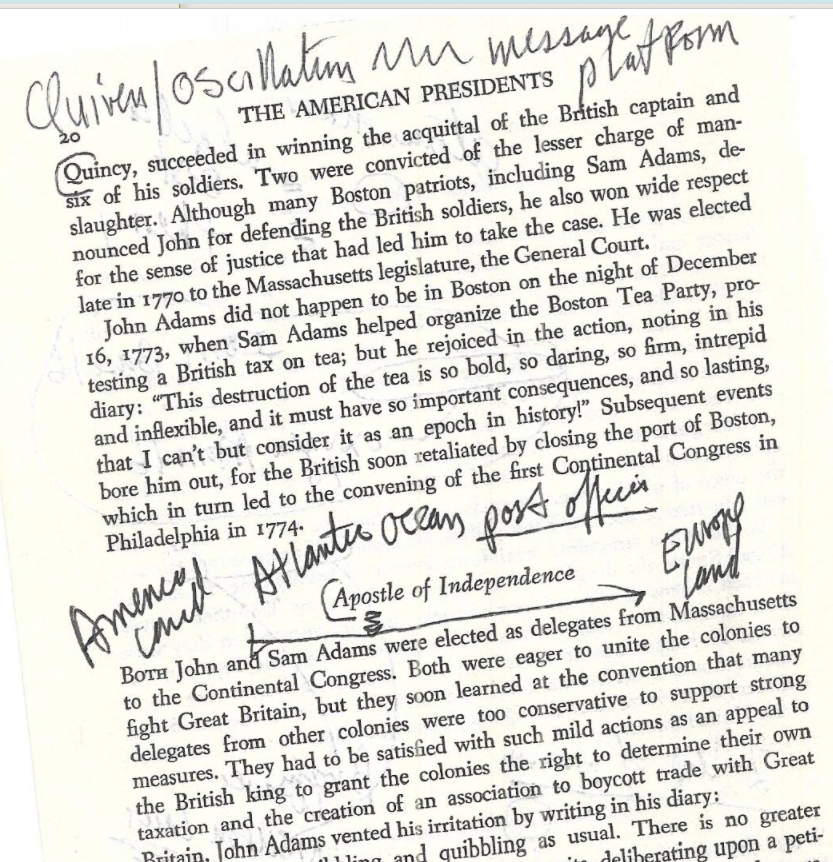 Quiver/oscillation message
platform
THE AMERICAN PRESIDENTS
20
Quincy, succeeded in winning the acquittal of the British captain and
six of his soldiers. Two were convicted of the lesser charge of man-
slaughter. Although many Boston patriots, including Sam Adams, de-
nounced John for defending the British soldiers, he also won wide respect
for the sense of justice that had led him to take the case. He was elected
late in 1770 to the Massachusetts legislature, the General Court.
John Adams did not happen to be in Boston on the night of December
16, 1773, when Sam Adams helped organize the Boston Tea Party, pro-
testing a British tax on tea; but he rejoiced in the action, noting in his
diary: “This destruction of the tea is so bold, so daring, so firm, intrepid
and inflexible, and it must have so important consequences, and so lasting,
that I can't but consider it as an epoch in history!” Subsequent events
bore him out, for the British soon retaliated by closing the port of Boston,
which in turn led to the convening of the first Continental Congress in
Philadelphia in 1774.
Atlantic Ocean post offices
America
Europe
land
Apostle of Independence
BOTH John and Sam Adams were elected as delegates from Massachusetts
to the Continental Congress. Both were eager to unite the colonies to
fight Great Britain, but they soon learned at the convention that many
delegates from other colonies were too conservative to support strong
measures. They had to be satisfied with such mild actions as an appeal to
the British king to grant the colonies the right to determine their own
taxation and the creation of an association to boycott trade with Great
Britain. John Adams vented his irritation by writing in his diary:
and quibbling as usual. There is no greater
deliberating upon a peti-